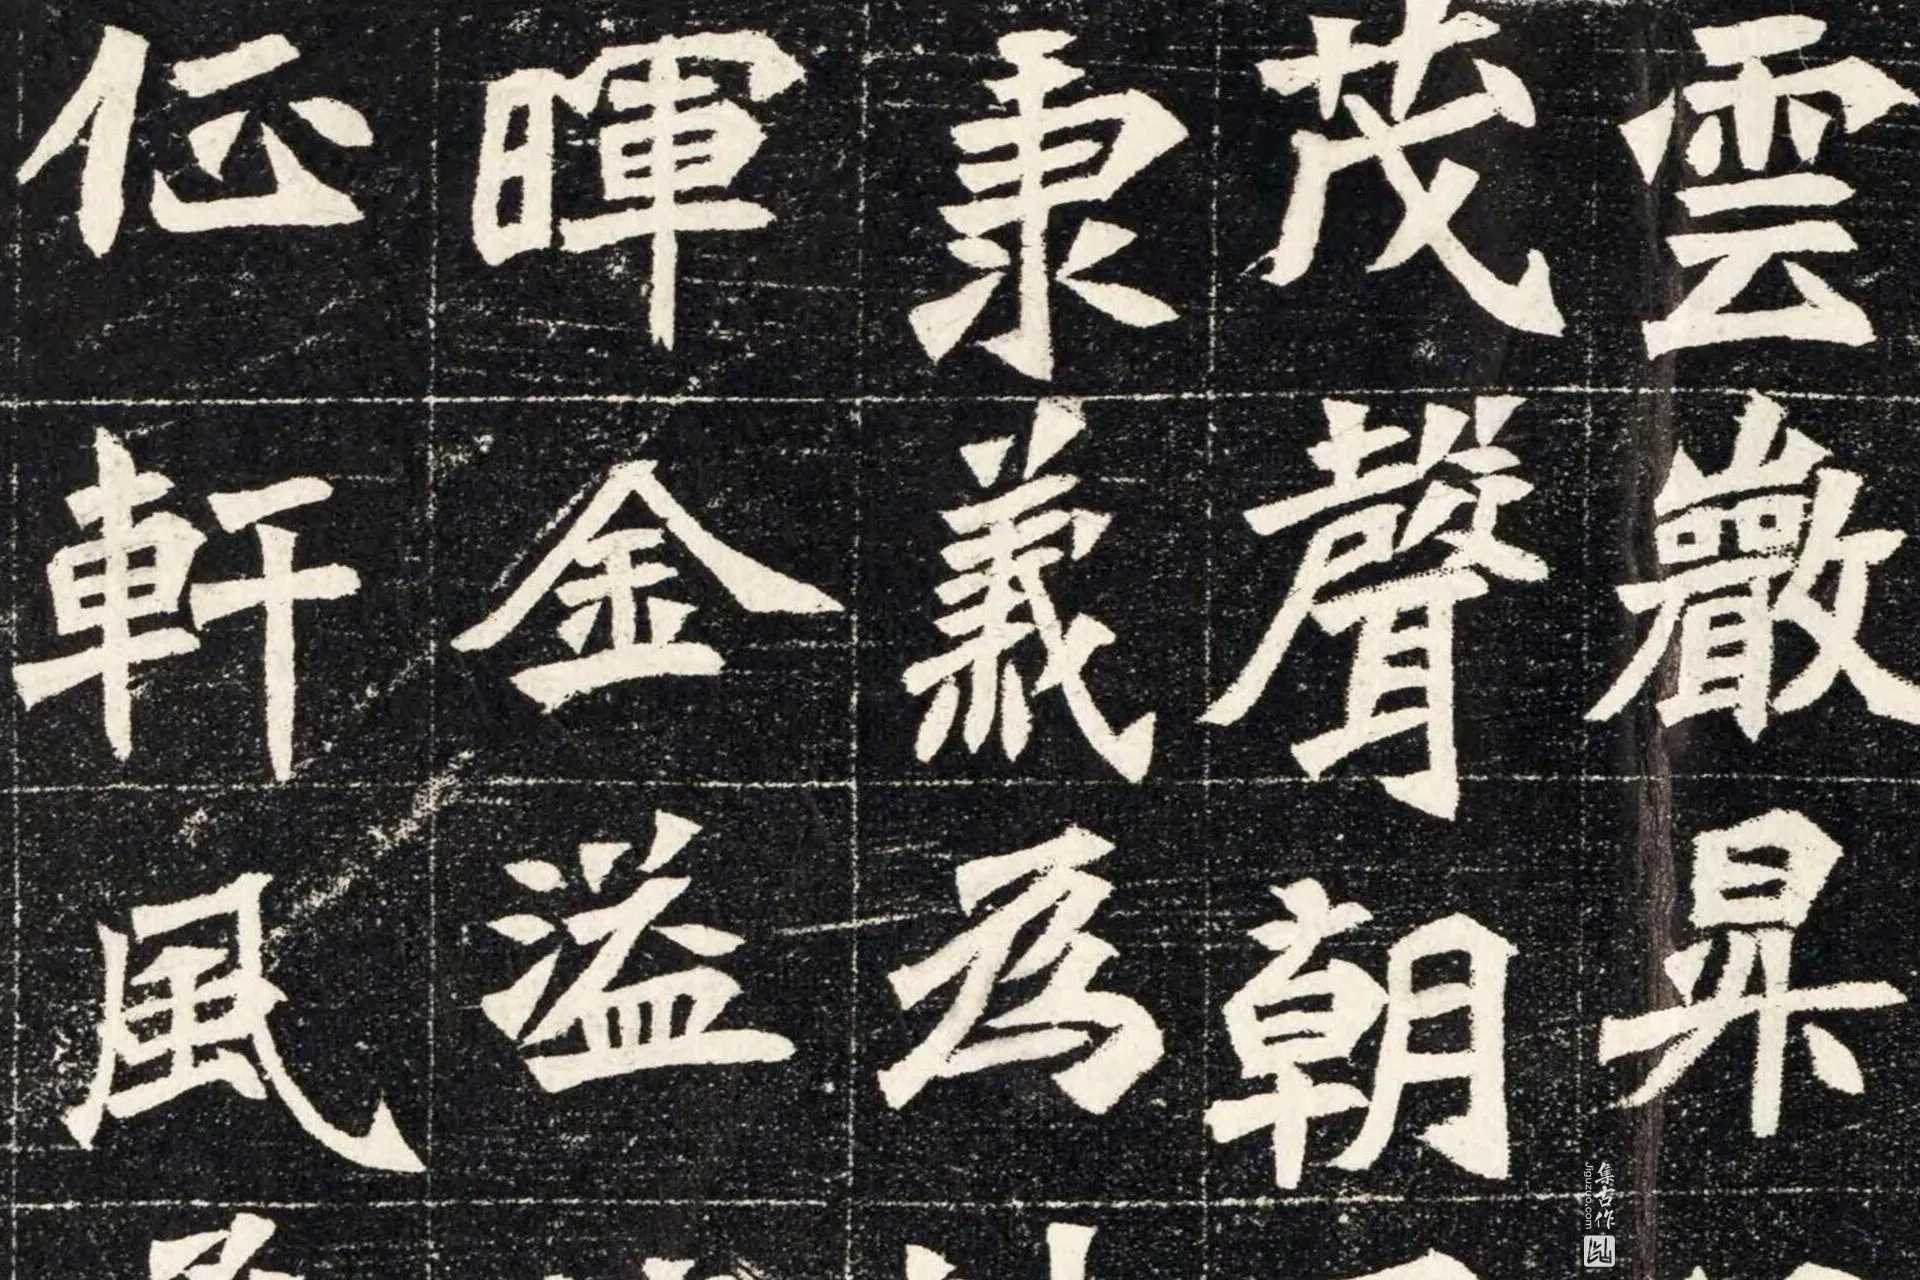 雲巖
茂聲朝
秉義為
暉金溢
軒風
集古作
Jiguzuo.com